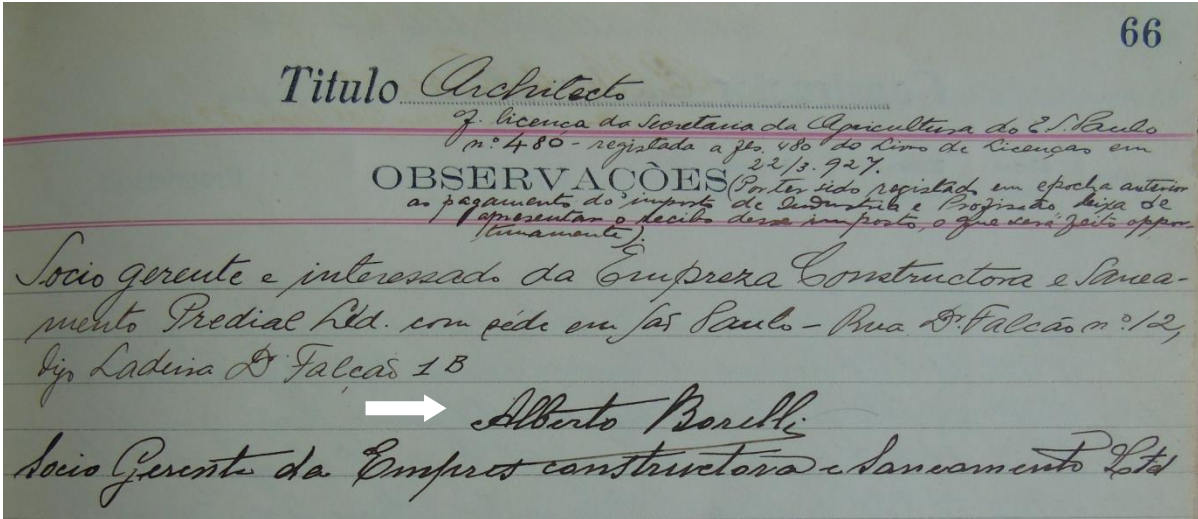 66
Titulo Architecto
of. licença da Secretaria da Agricultura do E. S. Paulo
nº 480 - registada a fls. 480 do Livro de Licenças em
22/3.927.
OBSERVAÇÕES (Por ter sido registado em epocha anterior
ao pagamento do imposto de Industria e Profissão, deixa de
apresentar o recibo desse imposto, o que será feito oppor-
tunamente).
Socio gerente e interessado da Empreza Constructora e Sanea-
mento Predial Ltd. com séde em São Paulo - Rua Dr. Falcão nº 12,
digo Ladeira Dr. Falcão 1 B
Alberto Borelli
Socio Gerente da Empres constructora e Saneamento Ltd